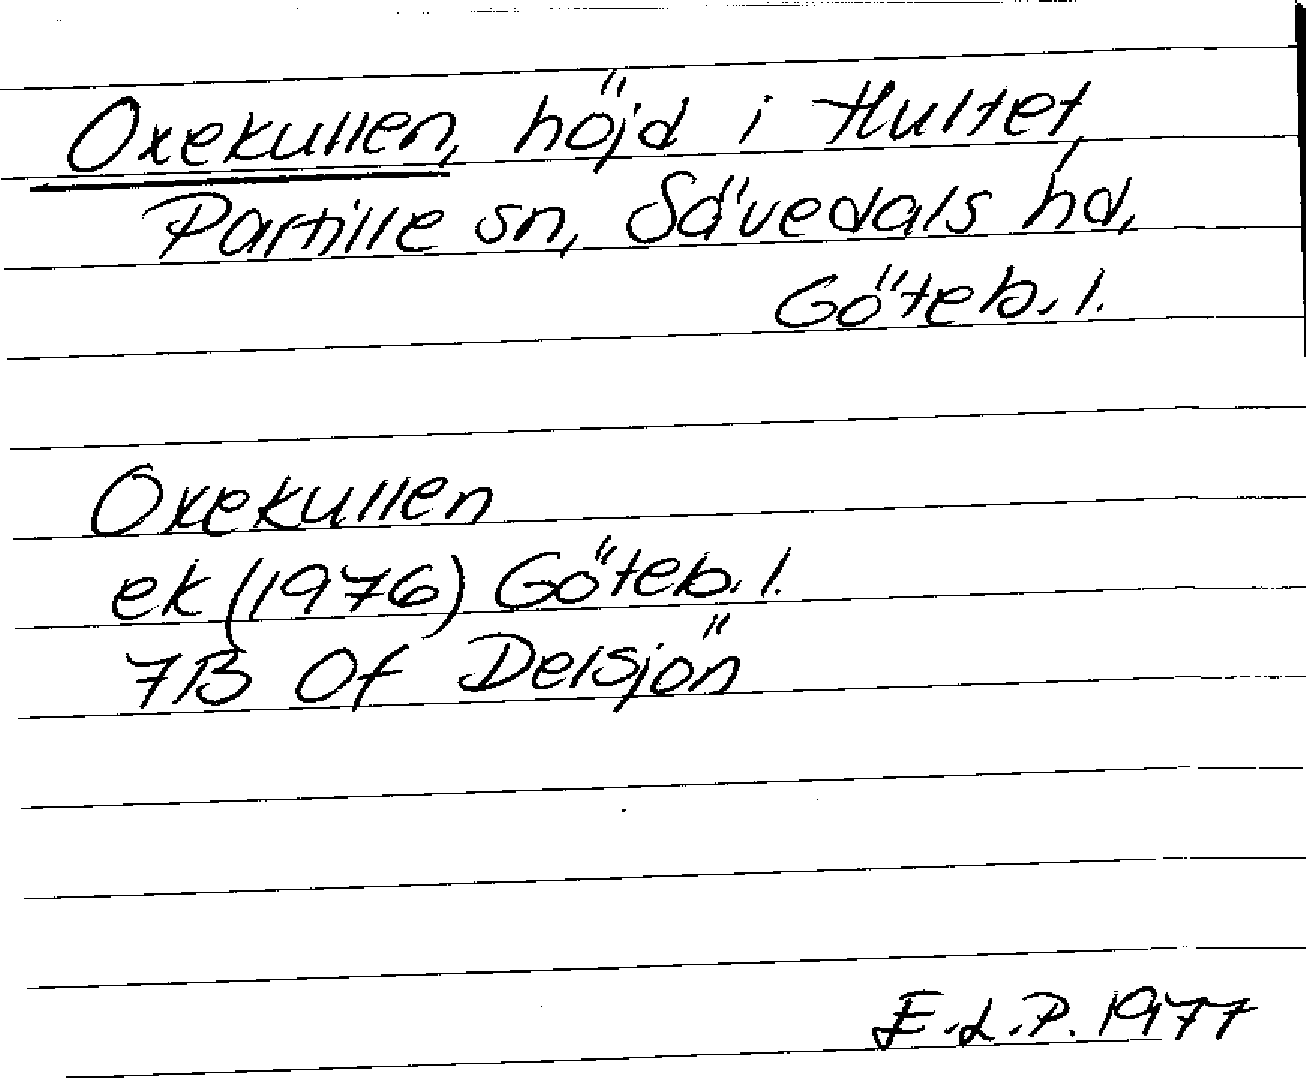 Oxekullen, höjd i Hultet,
Partille sn, Sävedals hd,
Göteb. l.
Oxekullen
ek (1976) Göteb. l.
7B 0f Delsjön
E.L.P. 1977